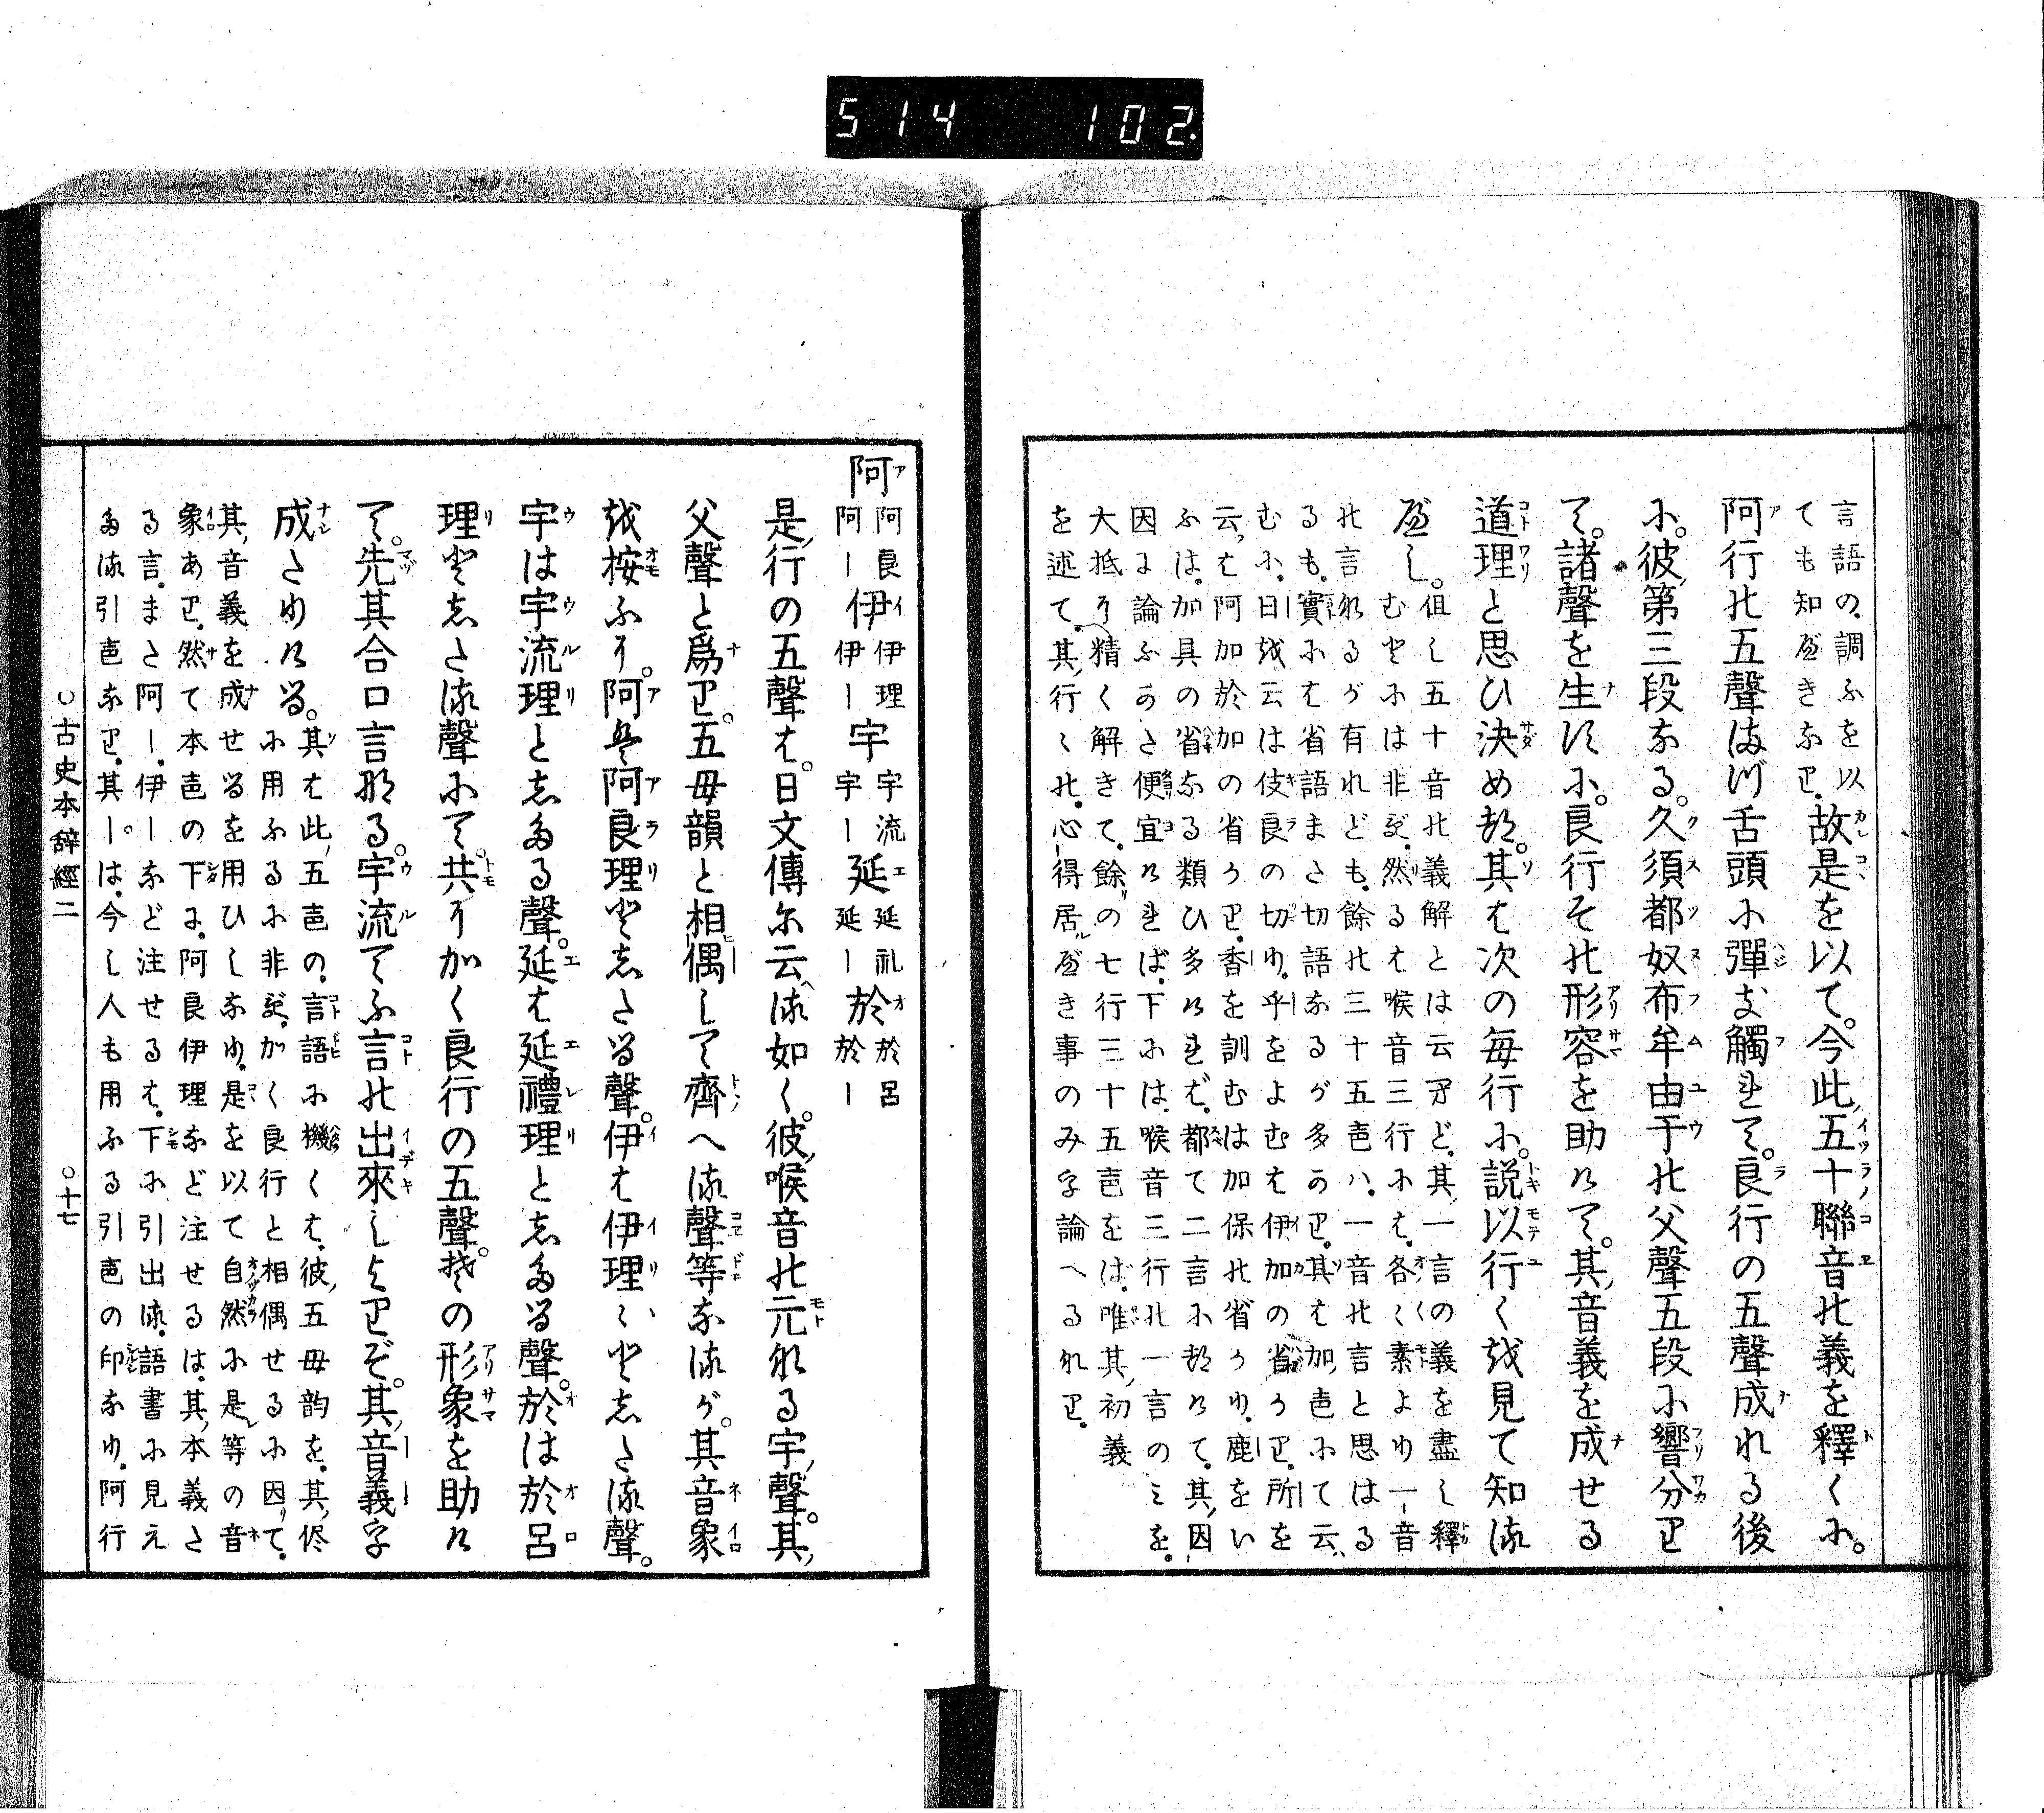 514 102.
言語の、調ふを以
ても知べきなり。故是を以て。今此五十聯音の義を釋くに。
阿行の五聲まづ舌頭に彈き觸れて。良行の五聲成れる後
に。彼第三段なる。久須都奴布牟由于の父聲五段に響分り
て。諸聲を生すに。良行その形容を助けて。其音義を成せる
道理と思ひ決めつ。其は次の毎行に。説以行くを見て知る
べし。但し五十音の義解とは云へど。其一言の義を盡し釋
むとには非ず。然るは喉音三行には。各々素より一音
の言なるが有れども。餘の三十五音ハ。一音の言と思はる
るも。實には省語また切語なるが多かり。其は加音にて云
む に。日を云は伎良の切り。乎をよむは伊加の省かり。所を
云は阿加於加の省かり。香を訓むは加保の省かり。鹿をい
ふは。加具の省なる類ひ多けれど。都て二言につけて。其因
因に論ふかた便宜ければ。下には。喉音三行の一言のみを。
大抵に精く解きて。餘の七行三十五音をば。唯其初義
を述て。其行々の。心得居べき事のみ論へるなり。
阿 阿良 阿ー 伊 伊理 伊ー 宇 宇流 宇ー 延 延礼 延ー 於 於呂 於ー
是行の五聲は。日文傳に云へる如く。彼喉音の元なる宇聲。其
父聲と爲り。五母韻と相偶して齊へる聲等なるが。其音象
を按ふに。阿は阿良理としたる聲。伊は伊理々としたる聲。
宇は宇流理としたる聲。延は延禮理としたる聲。於は於呂
理としたる聲にて共にかく良行の五聲。その形象を助け
て。先其合口言なる。宇流てふ言の出來しよりぞ。其音義を
成たりける。其は此五音の。言語に機くは、彼五母韵を。其侭
に用ふるに非ず。かく良行と相偶せるに因て。
其音義を成せるを用ひしなり。是を以て自然に是等の音
象あり。然て本音の下に。阿良伊理など注せるは。其本義た
る言。また阿ー。伊ーなど注せるは。下に引出る。語書に見え
たる引音なり。其ーは。今し人も用ふる引音の印なり。阿行
○古史本辭經二 ○十七